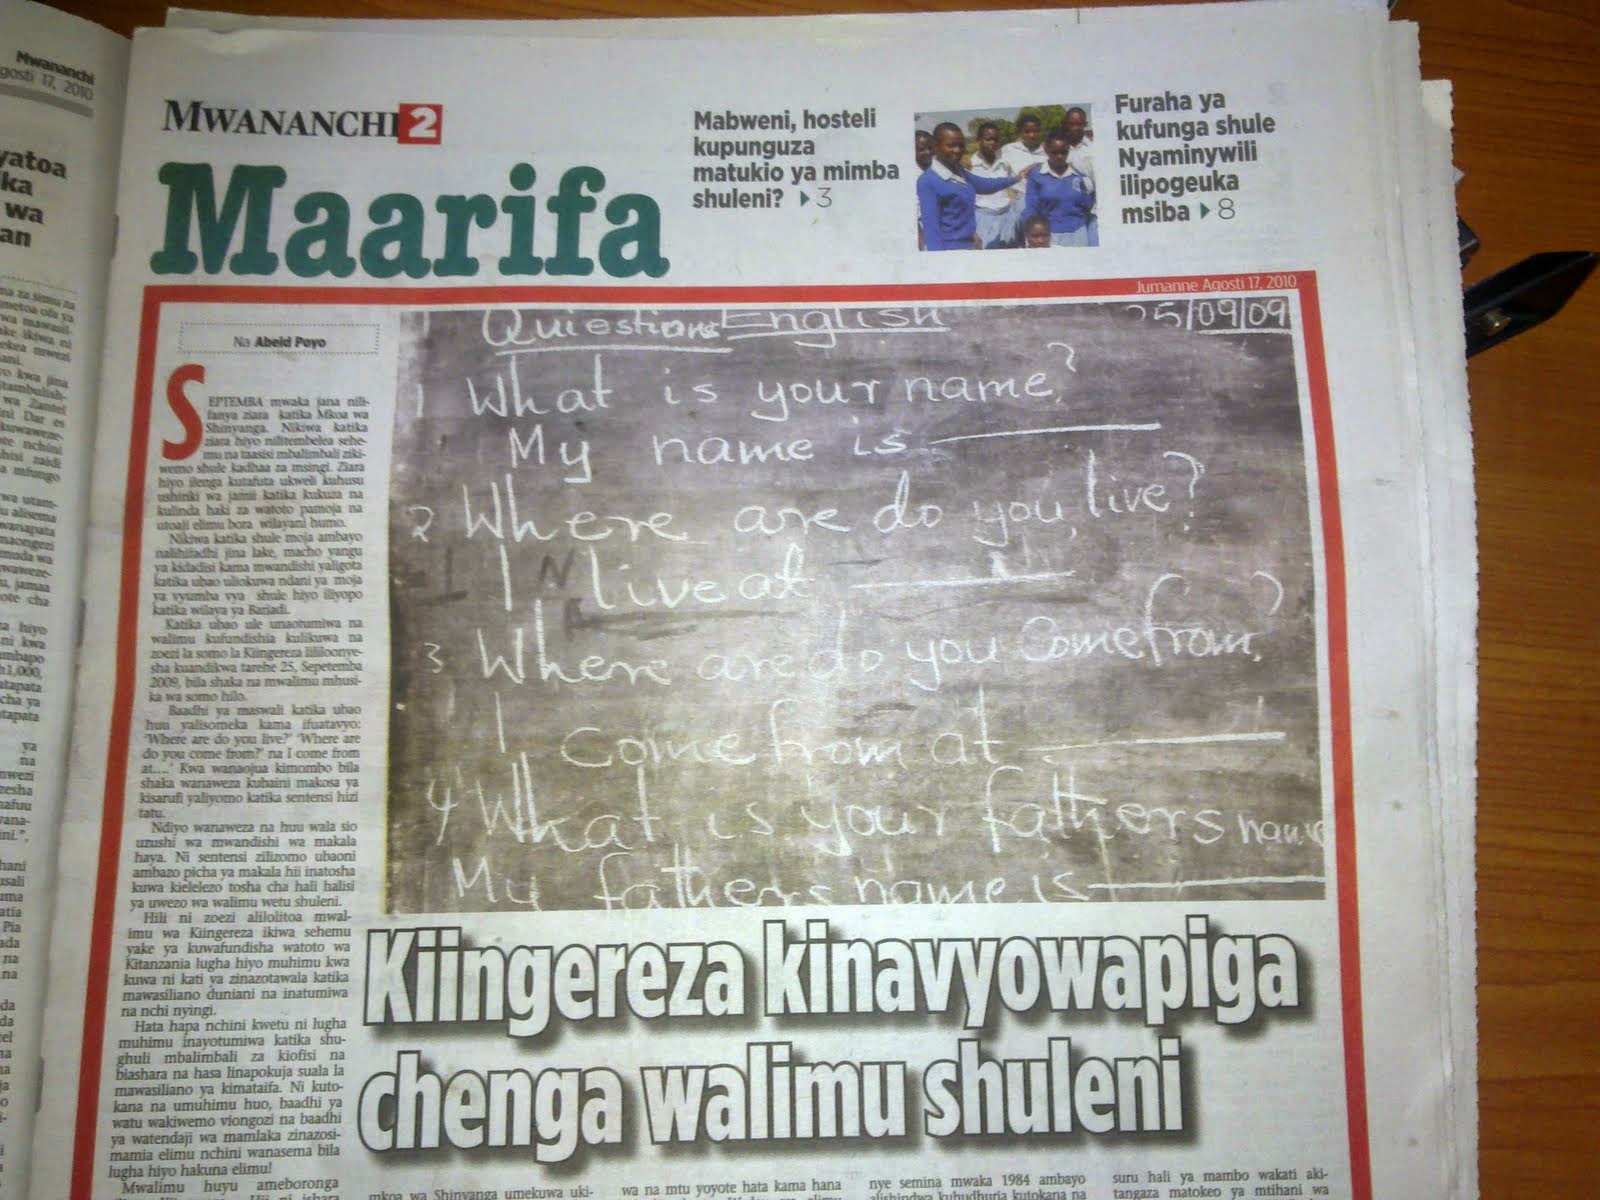 Mwananchi
gosti 17, 2010
yatoa
ka
wa
an
MWANANCHI 2
Maarifa
Mabweni, hosteli
kupunguza
matukio ya mimba
shuleni? 3
Furaha ya
kufunga shule
Nyaminywili
ilipogeuka
msiba 8
Jumanne Agosti 17, 2010
Na Abeid Poyo
SEPTEMBA mwaka jana nili-
fanya ziara katika Mkoa wa
Shinyanga. Nikiwa katika
ziara hiyo nilitembelea sehe-
mu na taasisi mbalimbali ziki-
wemo shule kadhaa za msingi. Ziara
hiyo ilenga kutafuta ukweli kuhusu
ushiriki wa jamii katika kukuza na
kulinda haki za watoto pamoja na
utoaji elimu bora wilayani humo.
Nikiwa katika shule moja ambayo
nalihifadhi jina lake, macho yangu
ya kidadisi kama mwandishi yaligota
katika ubao uliokuwa ndani ya moja
ya vyumba vya shule hiyo iliyopo
katika wilaya ya Bariadi.
Katika ubao ule unaotumiwa na
walimu kufundishia kulikuwa na
zoezi la somo la Kiingereza lililoonye-
sha kuandikwa tarehe 25, Sepetemba
2009, bila shaka na mwalimu mhusi-
ka wa somo hilo.
Baadhi ya maswali katika ubao
huu yalisomeka kama ifuatavyo:
'Where are do you live?' 'Where are
do you come from?' na I come from
at....' Kwa wanaojua kimombo bila
shaka wanaweza kubaini makosa ya
kisarufi yaliyomo katika sentensi hizi
tatu.
Ndiyo wanaweza na huu wala sio
uzushi wa mwandishi wa makala
haya. Ni sentensi zilizomo ubaoni
ambazo picha ya makala hii inatosha
kuwa kielelezo tosha cha hali halisi
ya uwezo wa walimu wetu shuleni.
Hili ni zoezi alilolitoa mwal-
imu wa Kiingereza ikiwa sehemu
yake ya kuwafundisha watoto wa
Kitanzania lugha hiyo muhimu kwa
kuwa ni kati ya zinazotawala katika
mawasiliano duniani na inatumiwa
na nchi nyingi.
Hata hapa nchini kwetu ni lugha
muhimu inayotumiwa katika shu-
ghuli mbalimbali za kiofisi na
biashara na hasa linapokuja suala la
mawasiliano ya kimataifa. Ni kuto-
kana na umuhimu huo, baadhi ya
watu wakiwemo viongozi na baadhi
ya watendaji wa mamlaka zinazosi-
mamia elimu nchini wanasema bila
lugha hiyo hakuna elimu!
Mwalimu huyu ameboronga
Quiestions English 25/09/09
1 What is your name?
My name is
2 Where are do you, live?
I live at
3 Where are do you come from?
I come from at
4 What is your fathers name
My fathers name is
Kiingereza kinavyowapiga
chenga walimu shuleni
mkoa wa Shinyanga umekuwa uki-
wa na mtu yoyote hata kama hana
nye semina mwaka 1984 ambayo
alishindwa kuhudhuria kutokana na
suru hali ya mambo wakati aki-
tangaza matokeo ya mtihani wa